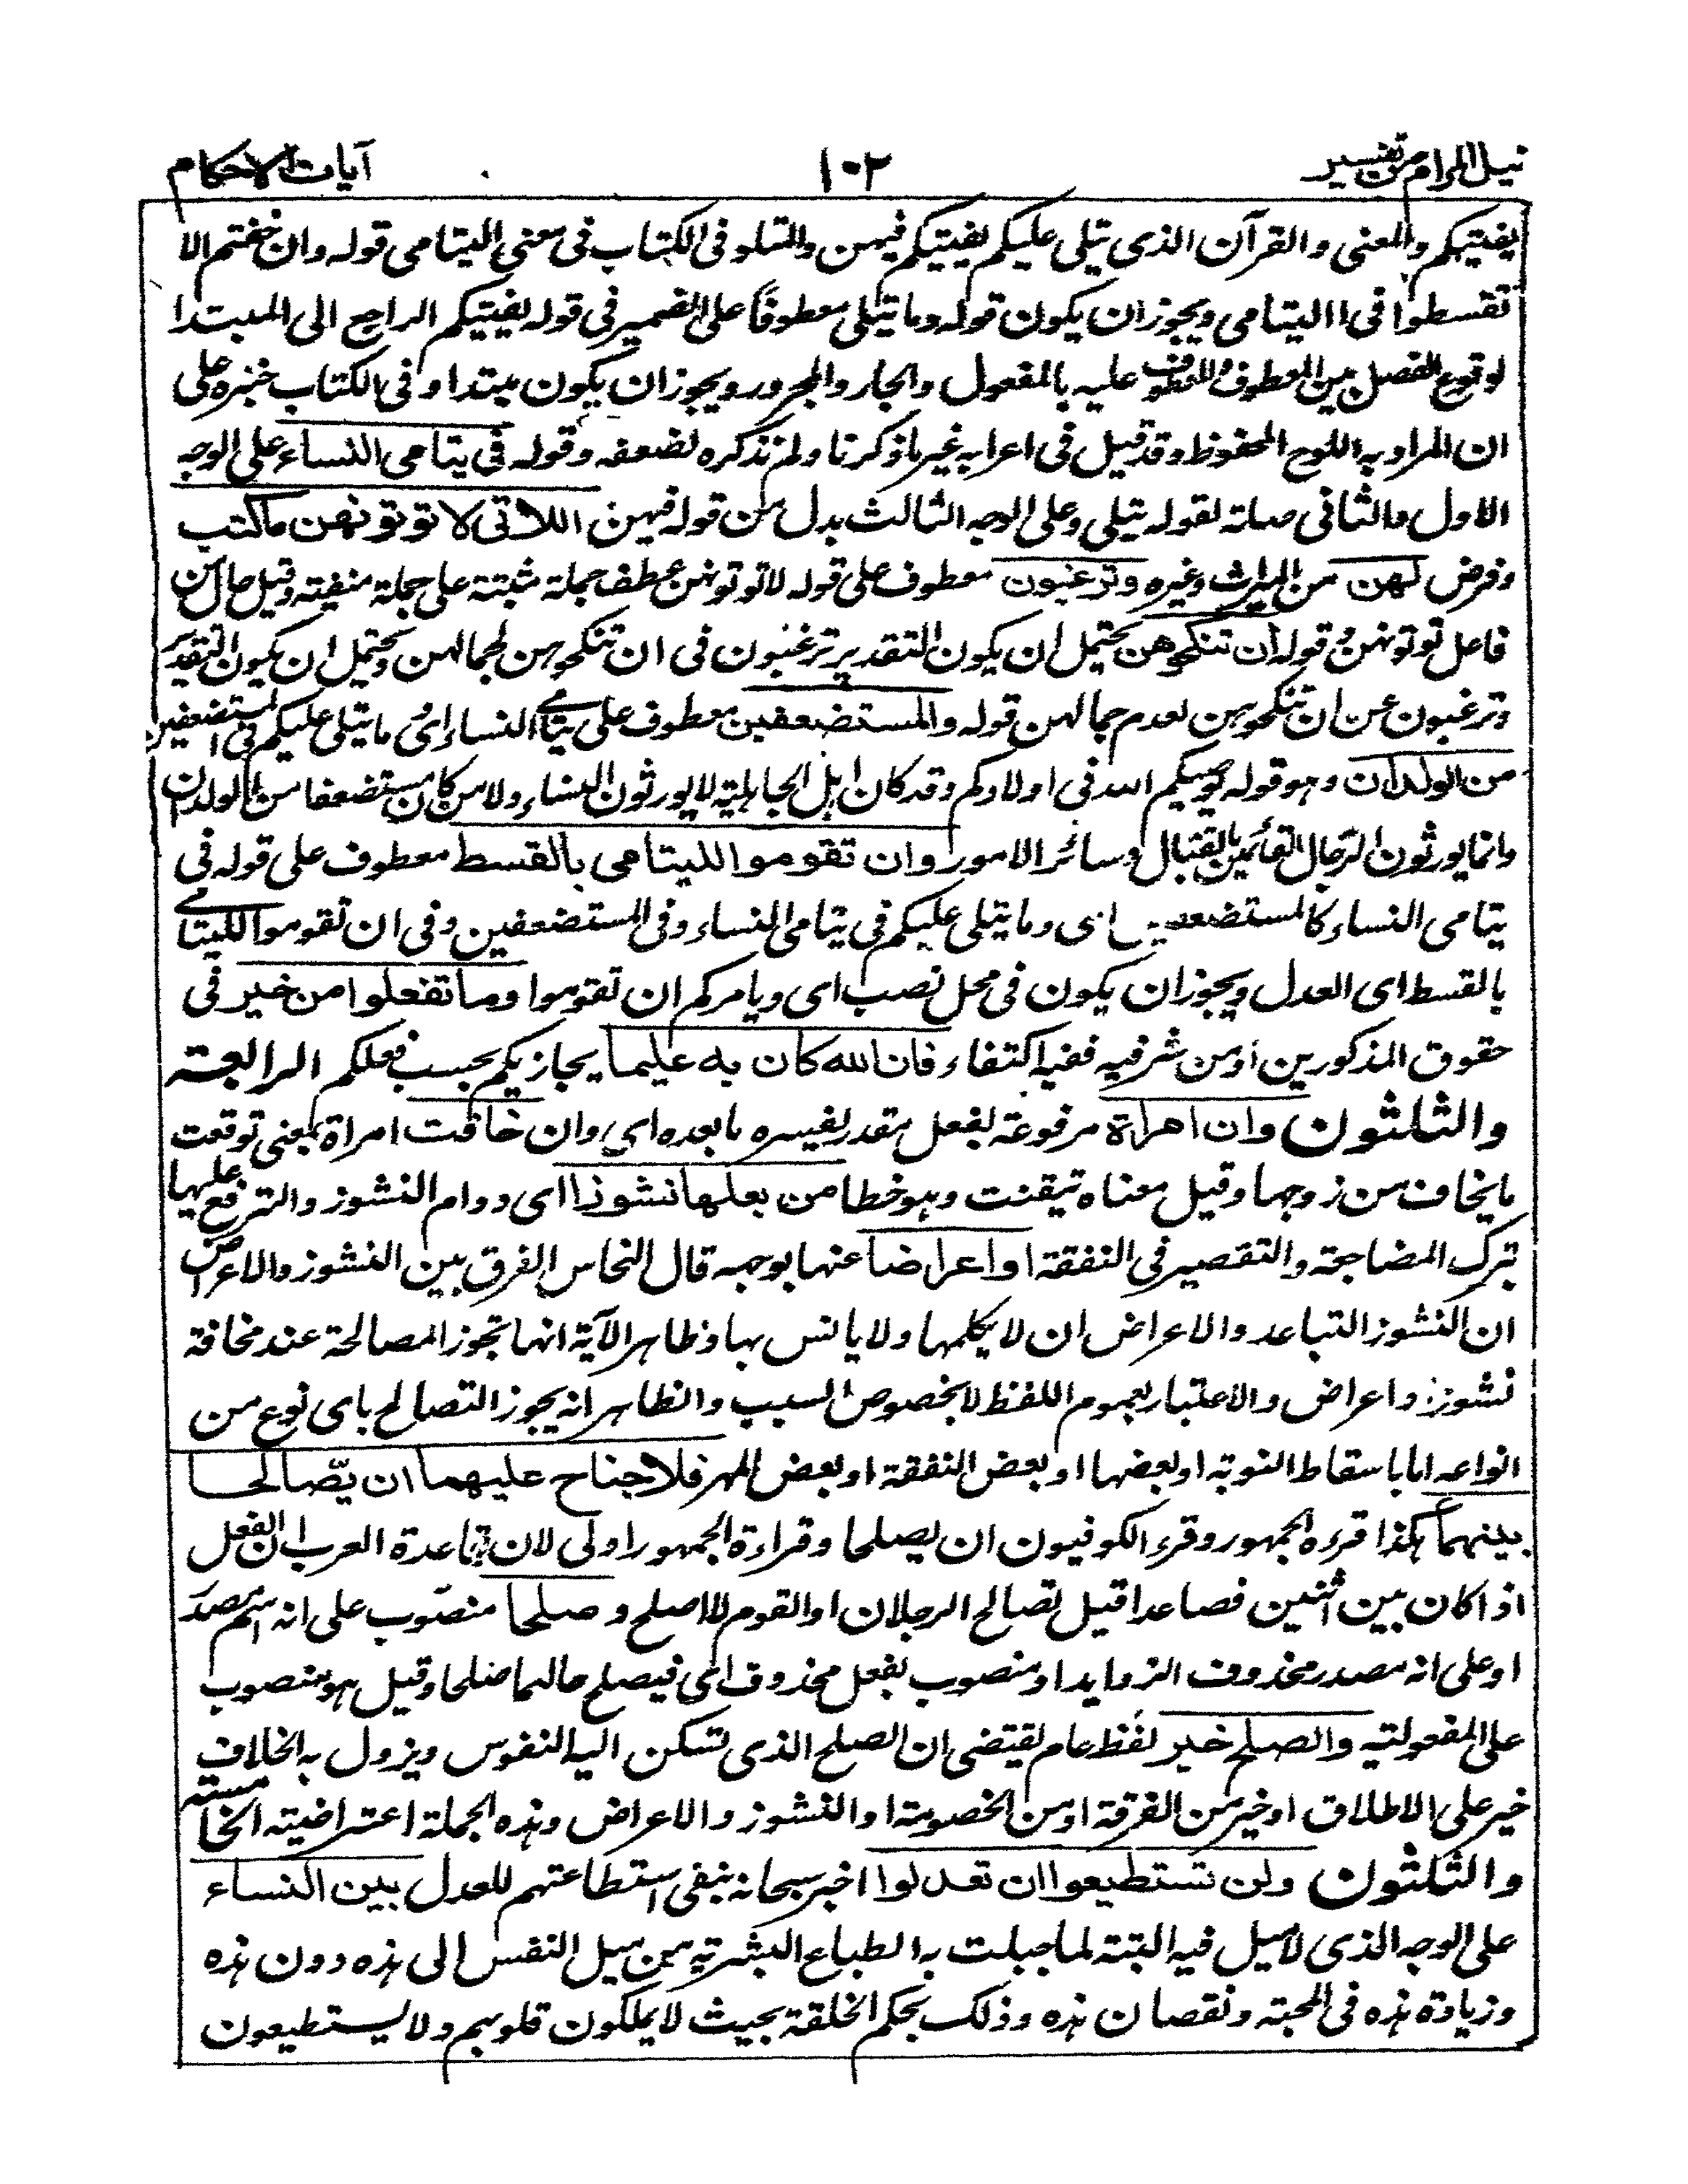 نيل المرام من تفسير
١٠٢
آيات الاحكام
يفتيكم والمعنى والقرآن الذى يتلى عليكم يفتيكم فيهن والمتلو فى الكتاب فى معنى اليتامى قوله وان خفتم الا
تقسطوا فى اليتامى ويجوز ان يكون قوله وما يتلى معطوفاً على الضمير فى قوله يفتيكم الراجع الى المبتدا
لوقوع الفصل بين المعطوف والمعطوف عليه بالمفعول والجار والمجرور ويجوز ان يكون مبتدا وفى الكتاب خبره على
ان المراد به اللوح المحفوظ وقد قيل فى اعرابه غير ما ذكرنا ولم نذكره لضعفه وقوله فى يتامى النساء على الوجه
الاول والثانى صلة لقوله يتلى وعلى الوجه الثالث بدل من قوله فيهن اللاتى لا تؤتونهن ما كتب
وفرض لهن من الميراث وغيره وترغبون معطوف على قوله لا تؤتونهن عطف جملة مثبتة على جملة منفية وقيل حال من
فاعل تؤتونهن وقوله ان تنكحوهن يحتمل ان يكون التقدير ترغبون فى ان تنكحوهن لجمالهن ويحتمل ان يكون التقدير
وترغبون عن ان تنكحوهن لعدم جمالهن قوله والمستضعفين معطوف على يتامى النساء اى وما يتلى عليكم فى المستضعفين
من الولدان وهو قوله يوصيكم الله فى اولادكم وقد كان اهل الجاهلية لا يورثون النساء ولا من كان مستضعفا من الولدان
وانما يورثون الرجال القائمين بالقتال وسائر الامور وان تقوموا لليتامى بالقسط معطوف على قوله فى
يتامى النساء كالمستضعفين اى وما يتلى عليكم فى يتامى النساء وفى المستضعفين وفى ان تقوموا لليتامى
بالقسط اى العدل ويجوز ان يكون فى محل نصب اى ويامركم ان تقوموا وما تفعلوا من خير فى
حقوق المذكورين او من شر فيه ففيه اكتفاء فان الله كان به عليما يجازيكم بحسب فعلكم الرابعة
والثلثون وان امراة مرفوعة بفعل مقدر يفسره ما بعده اى وان خافت امراة بمعنى توقعت
ما يخاف من زوجها وقيل معناه تيقنت وهو خطا من بعلها نشوزا اى دوام النشوز والترفع عليها
بترك المضاجعة والتقصير فى النفقة او اعراضا عنها بوجهه قال النحاس الفرق بين النشوز والاعراض
ان النشوز التباعد والاعراض ان لا يكلمها ولا يانس بها وظاهر الآية انها تجوز المصالحة عند مخافة
نشوز او اعراض والاعتبار بعموم اللفظ لا بخصوص السبب والظاهر انه يجوز التصالح باى نوع من
انواعه اما باسقاط النوبة او بعضها او بعض النفقة او بعض المهر فلا جناح عليهما ان يصّالحا
بينهما هكذا قرءه الجمهور وقرء الكوفيون ان يصلحا وقراءة الجمهور اولى لان قاعدة العرب ان الفعل
اذا كان بين اثنين فصاعدا قيل تصالح الرجلان او القوم لا اصلح و صلحا منصوب على انه اسم مصدر
او على انه مصدر محذوف الزوايد او منصوب بفعل محذوف اى فيصلح حالهما صلحا وقيل هو منصوب
على المفعولية والصلح خير لفظ عام يقتضى ان الصلح الذى تسكن اليه النفوس ويزول به الخلاف
خير على الاطلاق او خير من الفرقة او من الخصومة او النشوز والاعراض وهذه الجملة اعتراضية الخامسة
والثلثون ولن تستطيعوا ان تعدلوا اخبر سبحانه بنفى استطاعتهم للعدل بين النساء
على الوجه الذى لا ميل فيه البتة لما جبلت به الطباع البشرية من ميل النفس الى هذه دون هذه
وزيادة هذه فى المحبة ونقصان هذه وذلك بحكم الخلقة بحيث لا يملكون قلوبهم ولا يستطيعون